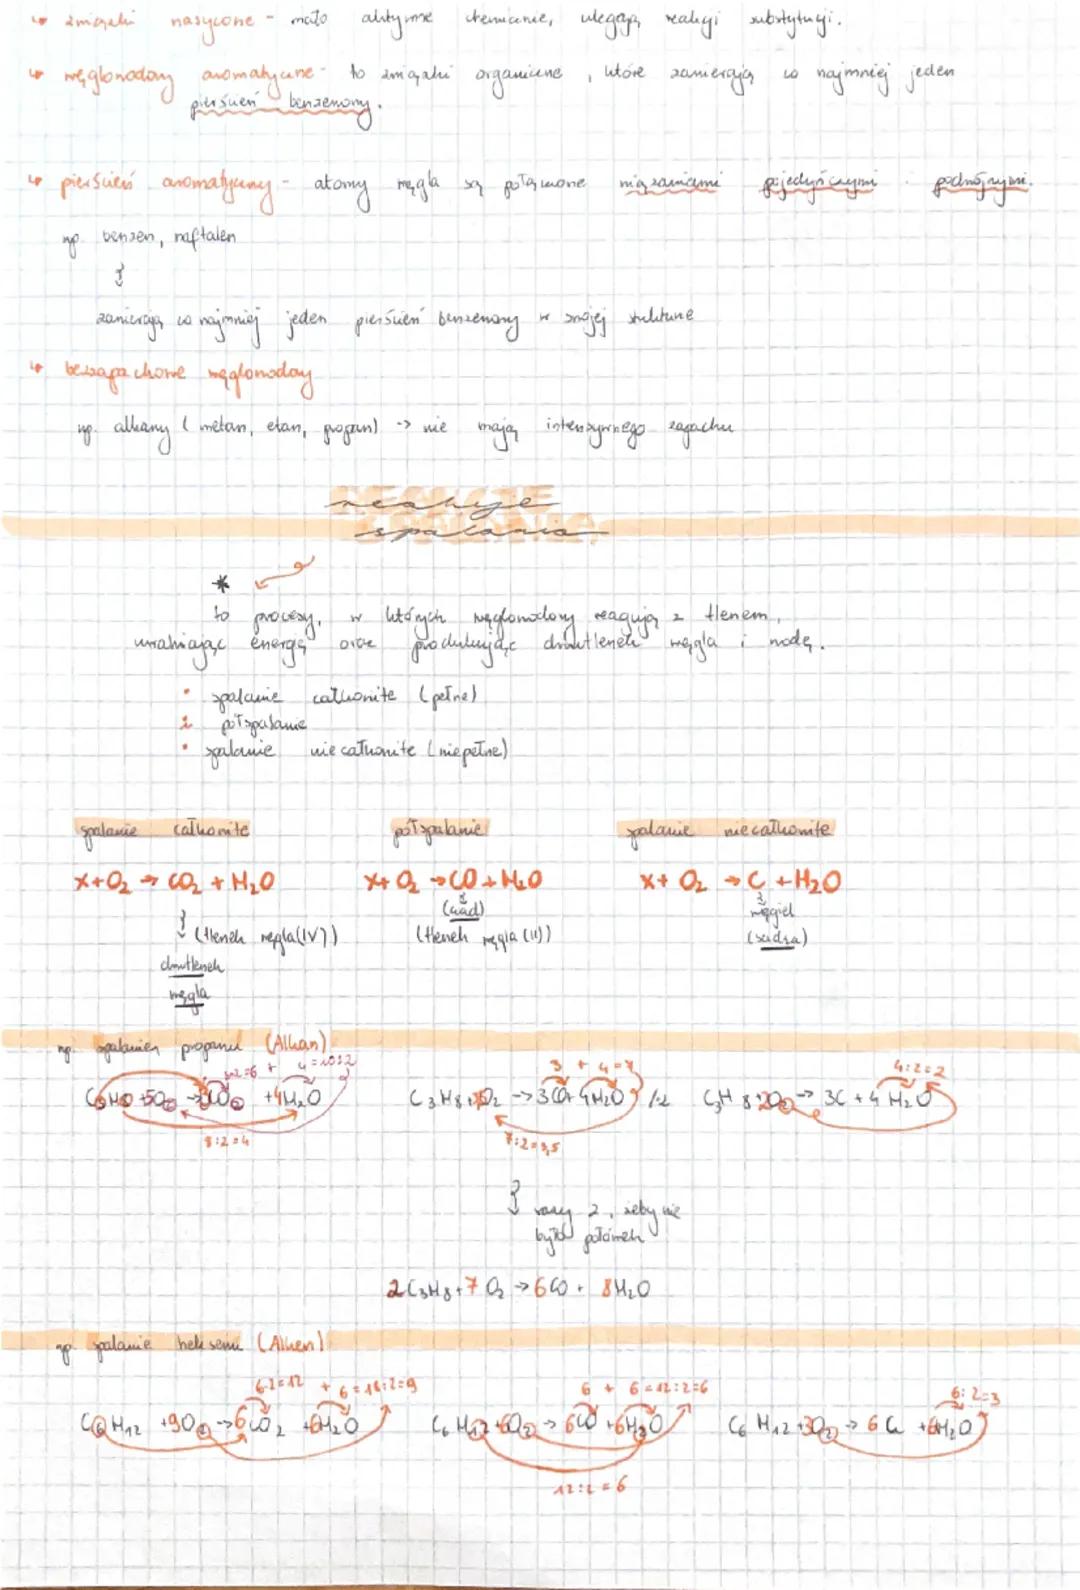 ↳ związki nasycone - mało aktywne chemicznie, ulegają reakcji substytucji.
↳ węglowodory aromatyczne - to związki organiczne, które zawierają co najmniej jeden
pierścień benzenowy.
↳ pierścień aromatyczny - atomy węgla są połączone wiązaniami pojedyńczymi i podwójnymi.
np. benzen, naftalen
zawierają co najmniej jeden pierścień benzenowy w swojej strukturze
↳ bezzapachowe węglowodory
np. alkany (metan, etan, propan) -> nie mają intensywnego zapachu
reakcje
spalania
* to procesy, w których węglowodory reagują z tlenem,
uwalniając energię oraz produkując dwutlenek węgla i wodę.
• spalanie całkowite (pełne)
• półspalanie
• spalanie niecałkowite (niepełne)
spalanie całkowite półspalanie spalanie niecałkowite
X+O₂ → CO₂ + H₂O X+O₂ → CO + H₂O X+O₂ → C + H₂O
(czad) węgiel
(tlenek węgla(IV)) (tlenek węgla (II)) (sadza)
dwutlenek
węgla
np. spalanie propanu (Alkan)
3·2=6 + 4=10:2 3 + 4=7 4:2=2
C₃H₈ +5O₂ → 3CO₂ +4H₂O C₃H₈+3,5O₂ -> 3CO+4H₂O /·2 C₃H₈+2O₂ -> 3C + 4H₂O
8:2=4 7:2=3,5
razy 2, żeby nie
było połówek
2C₃H₈+7O₂ -> 6CO + 8H₂O
np. spalanie heksenu (Alken)
6·2=12 + 6=18:2=9 6 + 6=12:2=6 6:2=3
C₆H₁₂ +9O₂ -> 6CO₂ +6H₂O C₆H₁₂+6O₂ -> 6CO +6H₂O C₆H₁₂+3O₂ -> 6C +6H₂O
12:2=6